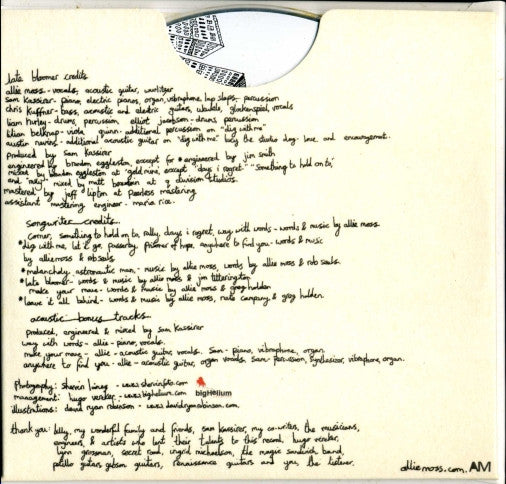 late bloomer credits
allie moss - vocals, acoustic guitar, wurlitzer
sam kassirer - piano, electric pianos, organ, vibraphone, lap slaps, percussion
chris kuffner - bass, acoustic and electric guitars, ukulele, glockenspiel, vocals
liam hurley - drums, percussion elliot jacobson - drums, percussion
kilian belknap - viola quinn - additional percussion on "dig with me"
austin nevins - additional acoustic guitar on "dig with me" the studio dog - love and encouragement.
produced by sam kassirer
engineered by brandon eggleston, except for * engineered by jim smith
mixed by brandon eggleston at gold mine, except "days i regret" "something to hold on to,"
and "rally," mixed by matt at q division studios.
mastered by jeff lipton at peerless mastering
assistant mastering engineer - maria rice.
songwriter credits
corner, something to hold on to, rally, days i regret, way with words - words & music by allie moss.
* dig with me, let it go, passerby, prisoner of hope, anywhere to find you - words & music
by allie moss & rob seals
* melancholy astronautic man - music by allie moss, words by allie moss & rob seals.
* late bloomer - words & music by allie moss & jim titterington
make your move - words & music by allie moss & greg holden
* leave it all behind - words & music by allie moss, nate campany & greg holden.
acoustic bonus tracks
produced, engineered & mixed by sam kassirer
way with words - allie - piano, vocals.
make your move - allie - acoustic guitar, vocals. sam - piano, vibraphone, organ.
anywhere to find you - allie - acoustic guitar, organ, vocals. sam - percussion, synthesizer, vibraphone, organ.
photography: shervin lainez - www.shervinfoto.com
management: hugo vereker - www.bighelium.com bigHelium
illustrations: david ryan robinson - www.davidryanrobinson.com.
thank you: billy, my wonderful family and friends, sam kassirer, my co-writers, the musicians,
engineers & artists who lent their talents to this record, hugo vereker,
lynn grossman, secret road, ingrid michaelson, the magic sandwich band,
guitars, gibson guitars, renaissance guitars and you, the listener.
alliemoss.com. AM